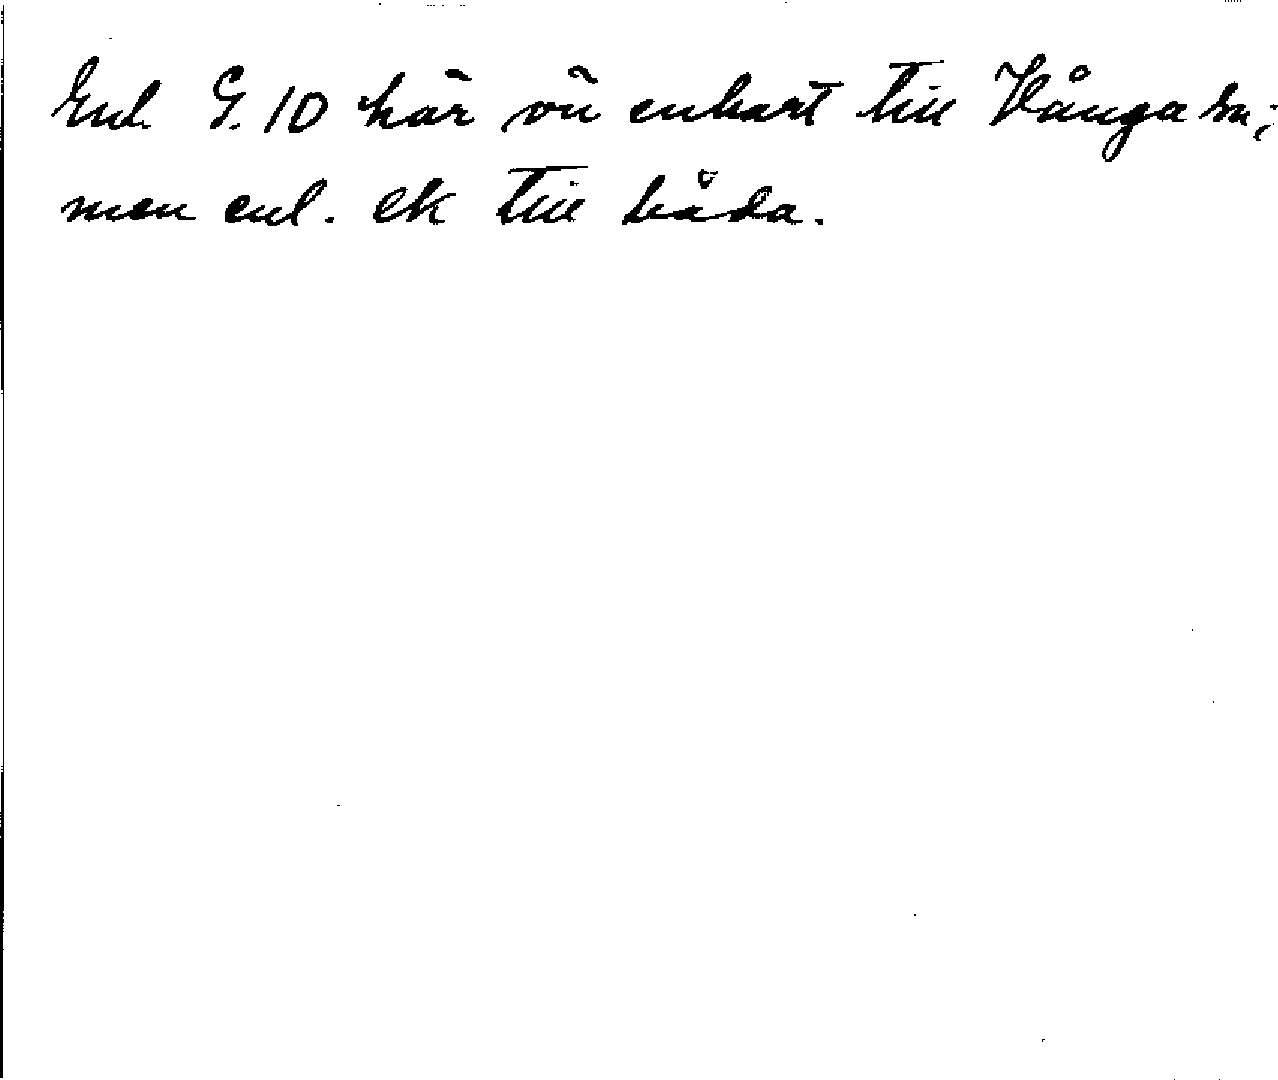 Enl. G. 10 här vü enbart till Vånga sn;
men enl. ek till båda.